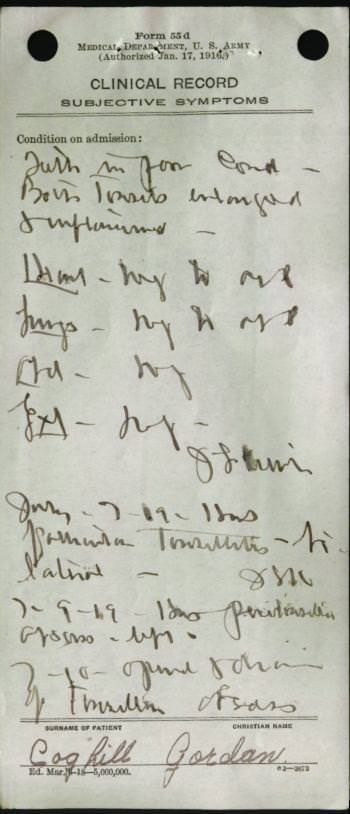 Form 55 d
MEDICAL DEPARTMENT, U. S. ARMY
(Authorized Jan. 17, 1916.)
CLINICAL RECORD
SUBJECTIVE SYMPTOMS
Condition on admission:
Teeth in poor Cond –
Both Tonsils enlarged
& inflammed –
Heart – Neg
Lungs – Neg
Abd – Neg
Ext – Neg –
Has
Tonsillitis –
7-9-19 – Has peritonsillar
abscess – left.
7-10- opened & drain
Tonsillar abscess
SURNAME OF PATIENT
CHRISTIAN NAME
Coghill Gordan.
Ed. Mar. 9-18—5,000,000.